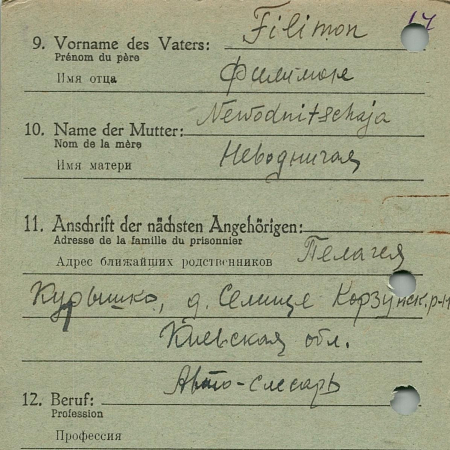 17
9. Vorname des Vaters: Filimon
Prénom du père
Имя отца Филимон
10. Name der Mutter: Newodnitschaja
Nom de la mère
Имя матери Неводничая
11. Anschrift der nächsten Angehörigen:
Adresse de la famille du prisonnier
Адрес ближайших родственников Пелагея
Курышко, д. Селище Корзунск. р-н
Киевская обл.
Авто-слесарь
12. Beruf:
Profession
Профессия